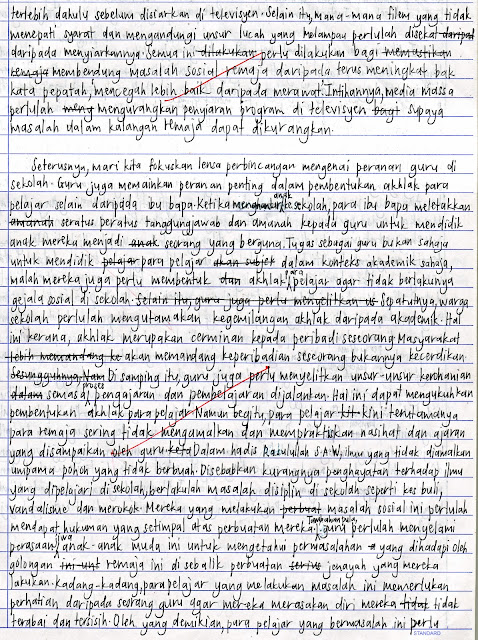 terlebih dahulu sebelum disiarkan di televisyen. Selain itu, mana-mana filem yang tidak
menepati syarat dan mengandungi unsur lucah yang melampau perlulah disekat daripad
daripada menyiarkannya. Semua ini dilakukan perlu dilakukan bagi memastikan
remaja membendung masalah sosial remaja daripada terus meningkat bak
kata pepatah, mencegah lebih baik daripada merawat. Intihannya, media massa
perlulah meng mengurangkan penyiaran program di televisyen bagi supaya
masalah dalam kalangan remaja dapat dikurangkan.
Seterusnya, mari kita fokuskan lensa perbincangan mengenai peranan guru di
sekolah. Guru juga memainkan peranan penting dalam pembentukan akhlak para
pelajar selain daripada ibu bapa. Ketika menghantar anak ke sekolah, para ibu bapa meletakkan
amanah seratus peratus tanggungjawab dan amanah kepada guru untuk mendidik
anak mereka menjadi anak seorang yang berguna. Tugas sebagai guru bukan sahaja
untuk mendidik pelajar para pelajar akan subjek dalam konteks akademik sahaja,
malah mereka juga perlu membentuk dan akhlak para pelajar agar tidak berlakunya
gejala sosial di sekolah. Selain itu, guru juga perlu menyelitkan us Sepatutnya, warga
sekolah perlulah mengutamakan kegemilangan akhlak daripada akademik. Hal
ini kerana, akhlak merupakan cerminan kepada peribadi seseorang. Masyarakat
lebih memandang ke akan memandang keperibadian seseorang bukannya kecerdikan.
Sesungguhnya, Nam Di samping itu, guru juga perlu menyelitkan unsur-unsur kerohanian
dalam semasa proses pengajaran dan pembelajaran dijalankan. Hal ini dapat mengukuhkan
pembentukan akhlak para pelajar. Namun begitu, para pelajar kini terutamanya
para remaja sering tidak mengamalkan dan mempraktiskan nasihat dan ajaran
yang disampaikan oleh guru. Dalam hadis Rasulullah S.A.W, ilmu yang tidak diamalkan
umpama pohon yang tidak berbuah. Disebabkan kurangnya penghayatan terhadap ilmu
yang dipelajari di sekolah, berlakulah masalah disiplin di sekolah seperti kes buli,
vandalisme dan merokok. Mereka yang melakukan perbuat masalah sosial ini perlulah
mendapat hukuman yang setimpal atas perbuatan mereka. Tambahan pula, guru perlulah menyelami
perasaan jiwa anak-anak muda ini untuk mengetahui permasalahan yang dihadapi oleh
golongan ini unt remaja ini di sebalik perbuatan jenayah yang mereka
lakukan. Kadang-kadang, para pelajar yang melakukan masalah ini memerlukan
perhatian daripada seorang guru agar mereka merasakan diri mereka tidak tidak
terabai dan tersisih. Oleh yang demikian, para pelajar yang bermasalah ini perlu
STANDARD